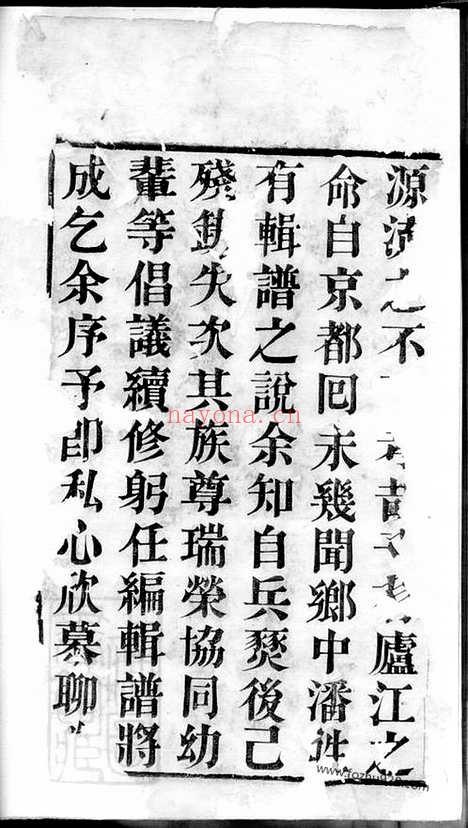 源 之不 廬江之
命自京都回未幾聞鄉中潘
有輯譜之說余知自兵燹後已
殘 失次其族尊瑞榮協同幼
輩等倡議續修躬任編輯譜將
成乞余序予即私心欣慕聊
nayona.cn